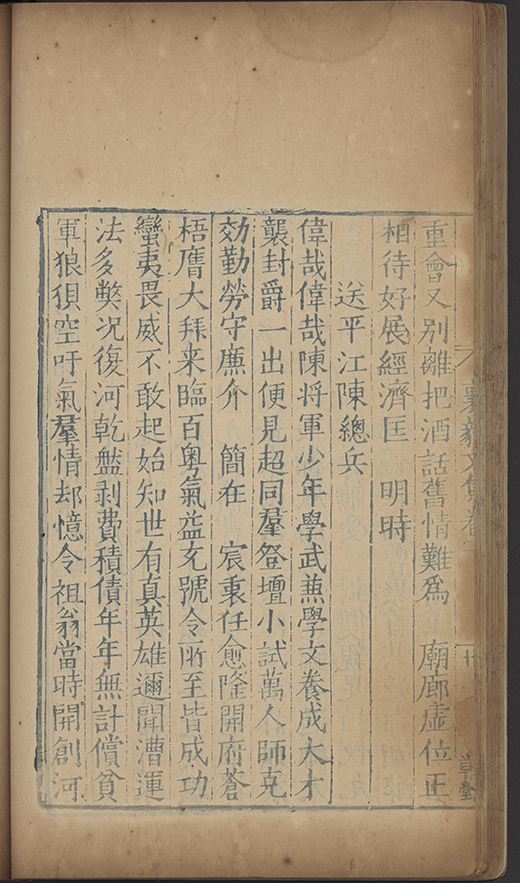 重會又別離把酒話舊情難爲　廟廊虛位正
相待好展經濟匡　明時
送平江陳總兵
偉哉偉哉陳将軍少年學武兼學文養成大才
襲封爵一出便見超同羣登壇小試萬人師克
効勤勞守廉介　簡在　宸衷任愈隆開府蒼
梧膺大拜来臨百粤氣益充號令所至皆成功
蠻夷畏威不敢起始知世有真英雄邇聞漕運
法多弊况復河乾盤剥費積債年年無計償貧
軍狼狽空吁氣羣情却憶令祖翁當時開創河
襄毅文集卷
草堂